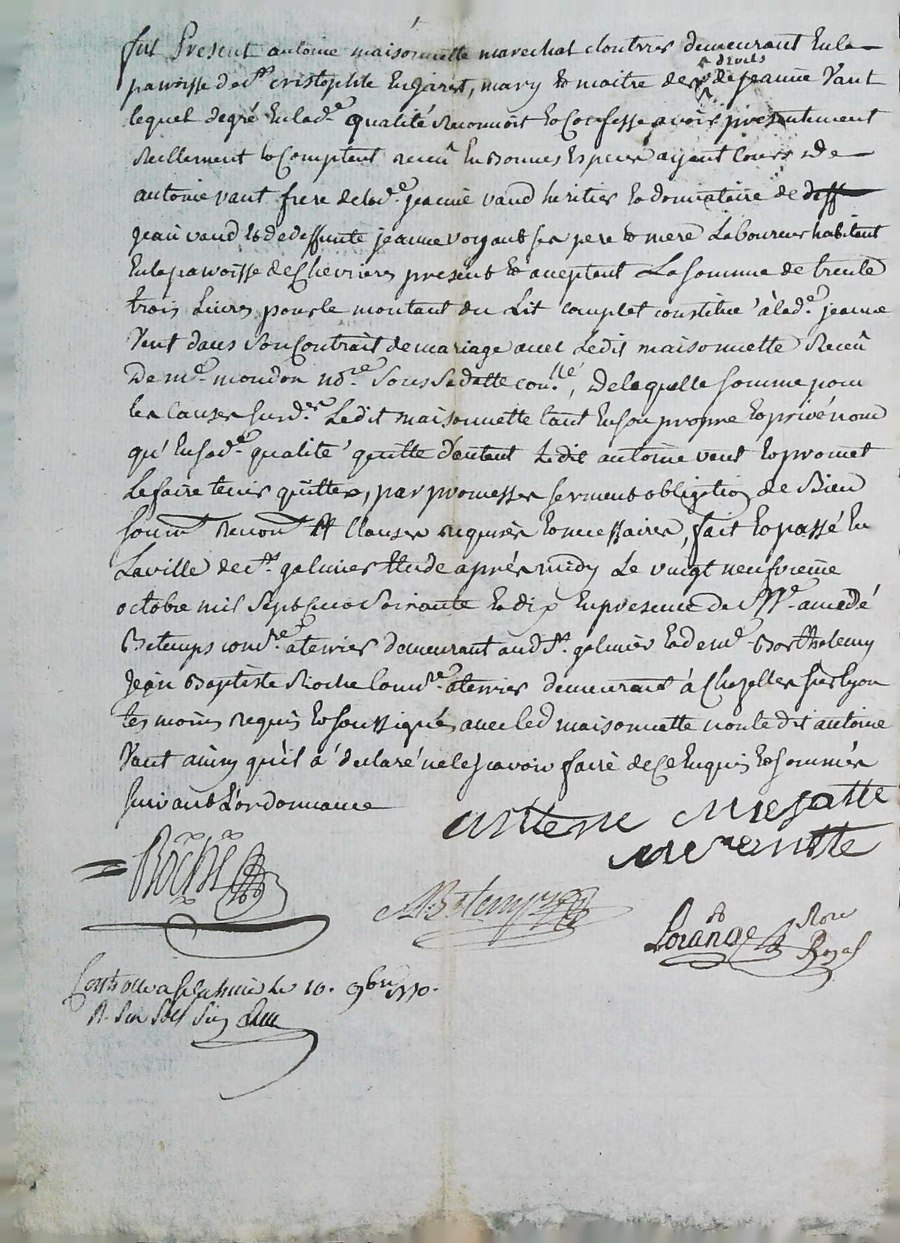 fut Present antoine maisonnette marechal cloutrier demeurant En la
paroisse de st cristophle En Jarest, mary & maitre des droits de jeanne Vaut
lequel degré En lad.e qualité Reconnoit & Confesse avoir presentement
Reellement & Comptant receu En Bonnes Especes ayant Cours de
antoine vaut frere de lad.e jeanne vaud heritier & donnataire de deff
jean vaud & de deffunte jeanne ses pere & mere Laboureur habitant
En la paroisse de Chevrieres present & aceptant La somme de trente
trois Livres pour le montant du Lit complet constitué à lad.e jeanne
Vaut dans son Contrait de mariage avec Ledit maisonnette Receu
De me moudon no.re sous sa datte con.llé, De laquelle somme pour
les Causes surd.es Ledit maisonnette tant En son propre & privé nom
qu'En sad.e qualité quitte d'autant Ledit antoine vaut & promet
Le faire tenir quitte, par promesses serment obligation de Bien
soum.on renon.on & Clauses requises & necessaires, fait & passé En
La ville de st galmier Etude aprés midy Le vingt neufvieme
octobre mil sept cens soixante & dix En presence de amedé
Betemps com.re a terrier demeurant aud st galmier & de me Barthelemy
Jean Baptiste Roche com.re a terrier demeurant à Chazelles sur Lyon
temoins requis & soussignés avec led maisonnette non le dit antoine
Vaut ainsy qu'il a declaré ne le scavoir faire de Ce Enquis & sommés
suivant L'ordonnance
antene
Roche
Betemps
Lorange Nore
Royal
Controllé a st galmier le 10. 9bre 1770.
R. six sols six den